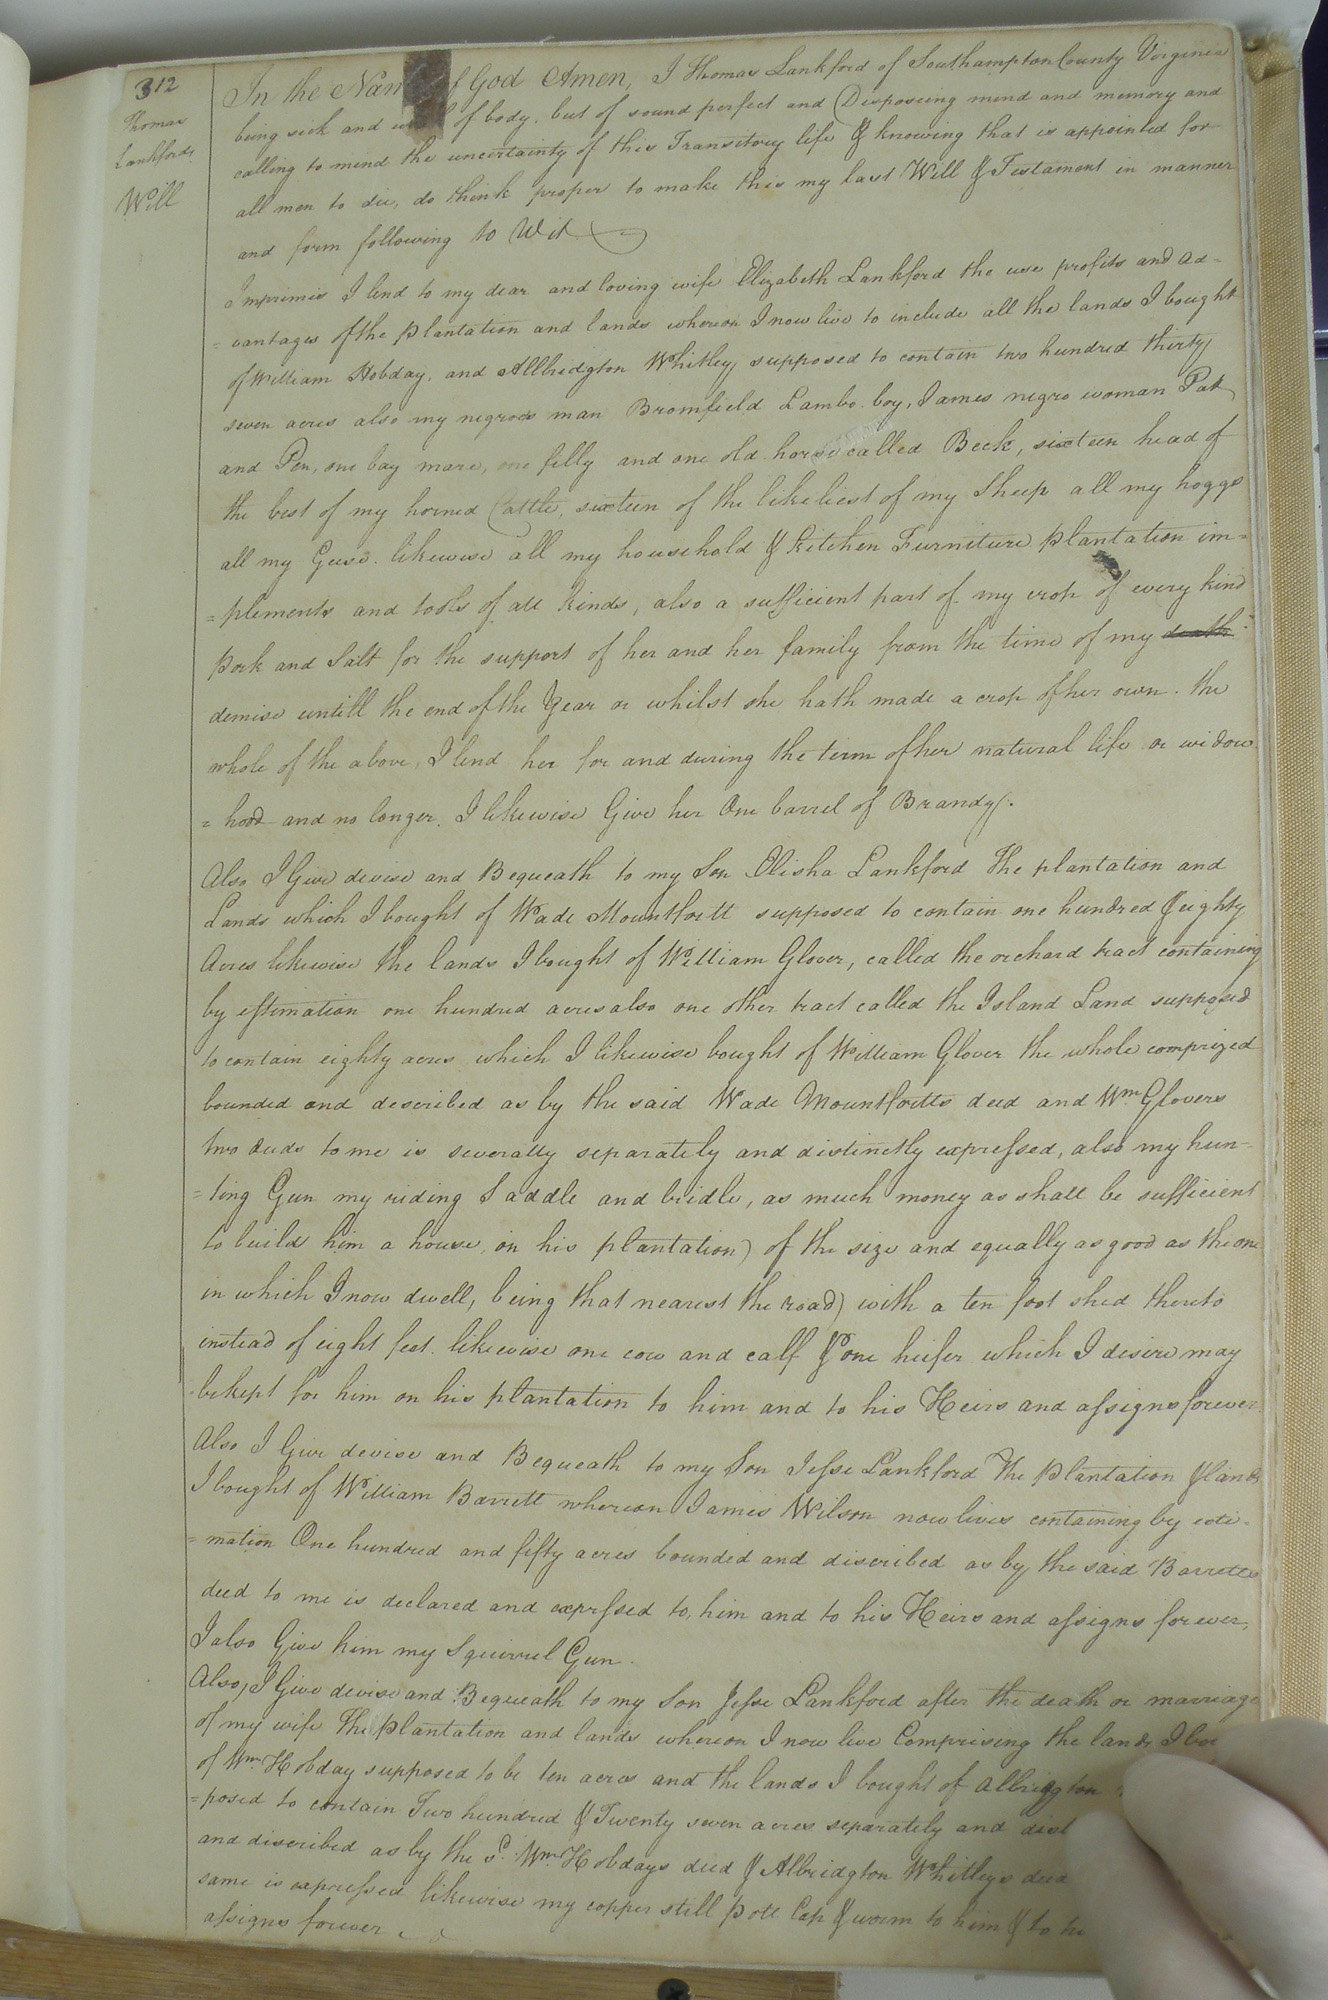 312
Thomas
Lankfords
Will
In the Nam f God Amen, I Thomas Lankford of Southampton County Virginia
being sick and of body, but of sound perfect and Disposing mind and memory and
calling to mind the uncertainty of this Transitory life & knowing that is appointed for
all men to die, do think proper to make this my last Will & Testament in manner
and form following to Wit
Imprimis I lend to my dear and loving wife Elizabeth Lankford the use profits and ad-
=vantages of the plantation and lands whereon I now live to include all the lands I bought
of William Hobday, and Allbridgton Whitley supposed to contain two hundred thirty
seven acres also my negroes man Bromfield Lambo. boy, James negro woman Pat
and Pen, one bay mare, one filly and one old horse called Beck, sixteen head of
the best of my horned Cattle, sixteen of the likeliest of my Sheep all my hoggs
all my Geese. likewise all my household & Kitchen Furniture plantation im=
=plements and tools of all kinds, also a sufficient part of my crop of every kind
pork and Salt for the support of her and her family from the time of my death
demise untill the end of the Year or whilst she hath made a crop of her own. the
whole of the above, I lend her for and during the term of her natural life or widow
=hood and no longer. I likewise Give her One barrel of Brandy.
Also I Give devise and Bequeath to my Son Elisha Lankford The plantation and
Lands which I bought of Wade Mountfortt supposed to contain one hundred & eighty
Acres likewise the lands I bought of William Glover, called the orchard tract containing
by estimation one hundred acres also one other tract called the Island Land supposed
to contain eighty acres which I likewise bought of William Glover the whole comprized
bounded and described as by the said Wade Mountfortts deed and Wm Glovers
two deeds to me is severally separately and distinctly expressed, also my hun-
=ting Gun my riding Saddle and bridle, as much money as shall be sufficient
to build him a house, on his plantation) of the size and equally as good as the one
in which I now dwell, being that nearest the road) with a ten foot shed thereto
instead of eight feet. likewise one cow and calf & one heifer which I desire may
be kept for him on his plantation to him and to his Heirs and assigns forever
Also I Give devise and Bequeath to my Son Jesse Lankford The Plantation & lands
I bought of William Barrett whereon James Wilson now lives containing by esti-
=mation One hundred and fifty acres bounded and discribed as by the said Barretts
deed to me is declared and expressed to, him and to his Heirs and assigns forever,
I also Give him my Squirrel Gun.
Also, I Give devise and Bequeath to my Son Jesse Lankford after the death or marriage
of my wife The plantation and lands whereon I now live Comprising the lands I
of Wm Hobday supposed to be ten acres and the lands I bought of Albrigton
=posed to contain Two hundred & Twenty seven acres separately and dist
and discribed as by the sd. Wm Hobdays deed & Albridgton Whitleys deed
same is expressed likewise my copper still pott Cap & worm to him & to
assigns forever